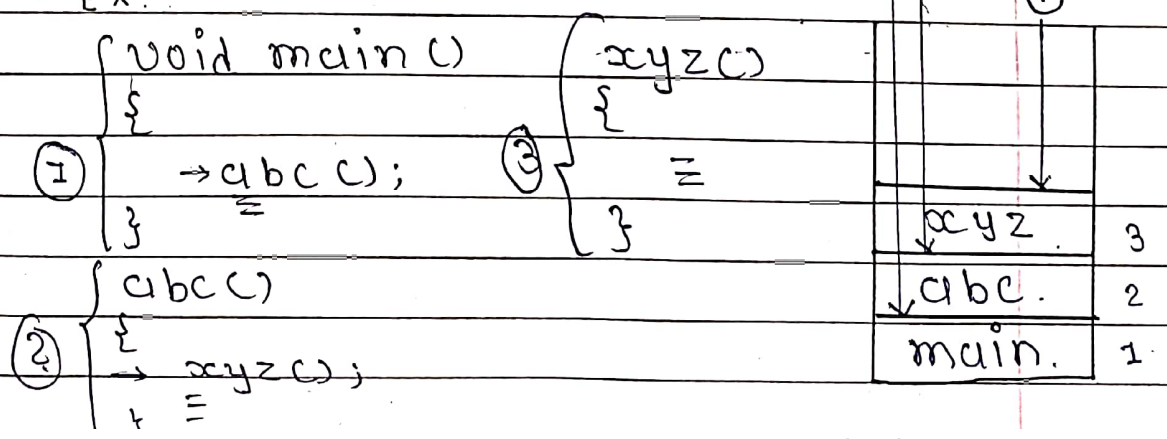 void main ()
{
① → abc ();
}
② abc ()
{
→ xyz ();
}
③ xyz ()
{
}
xyz. 3
abc. 2
main. 1.